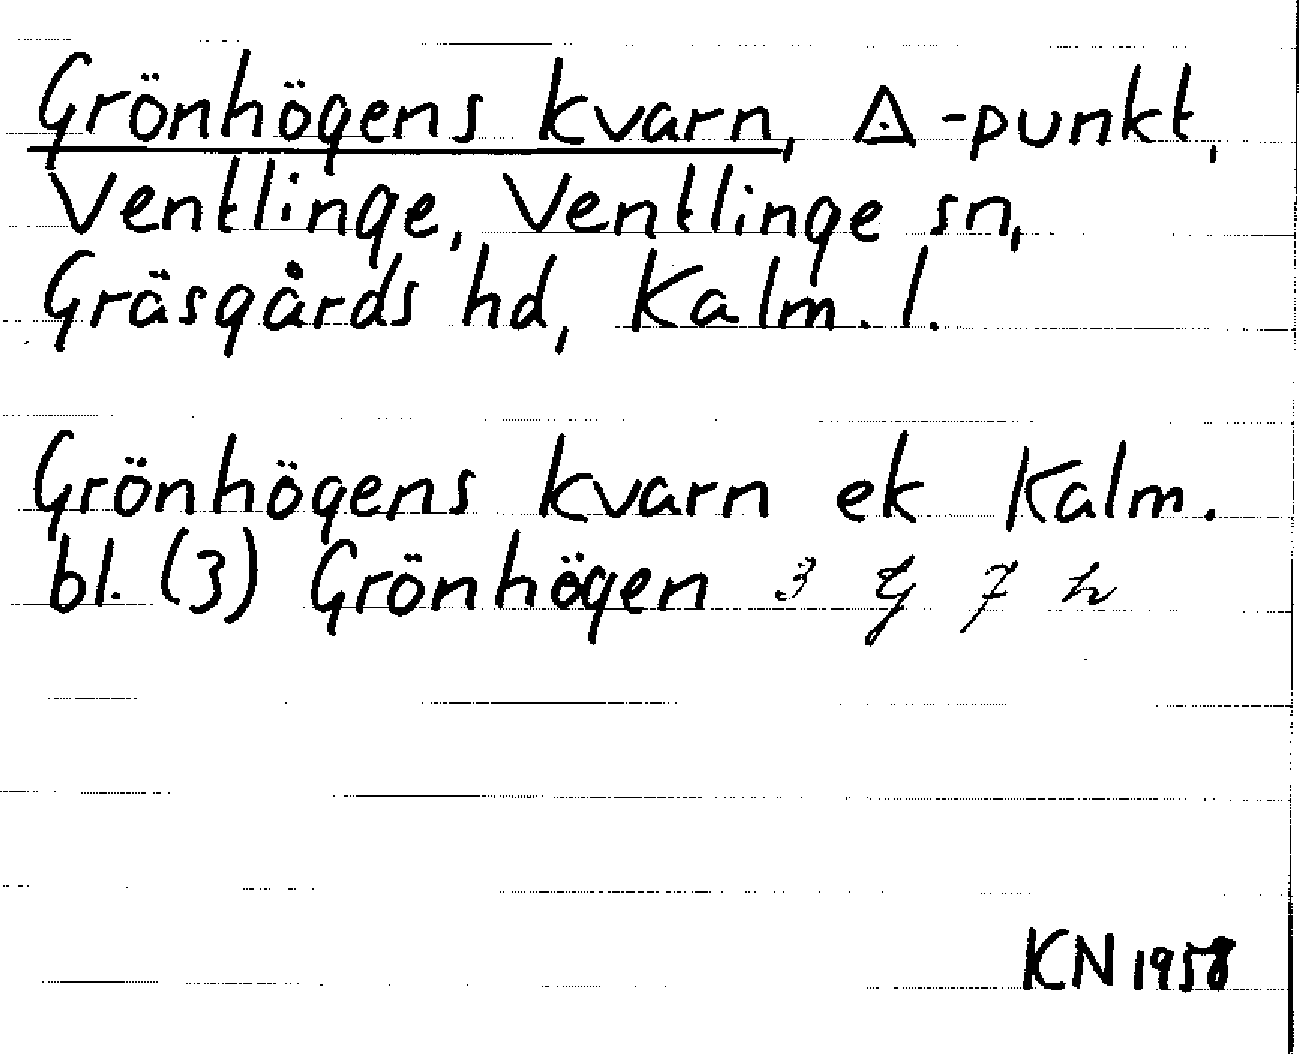 Grönhögens kvarn, △-punkt,
Ventlinge, Ventlinge sn,
Gräsgårds hd, Kalm. l.
Grönhögens kvarn ek Kalm.
bl. (3) Grönhögen 3 G 7 h
KN 1958